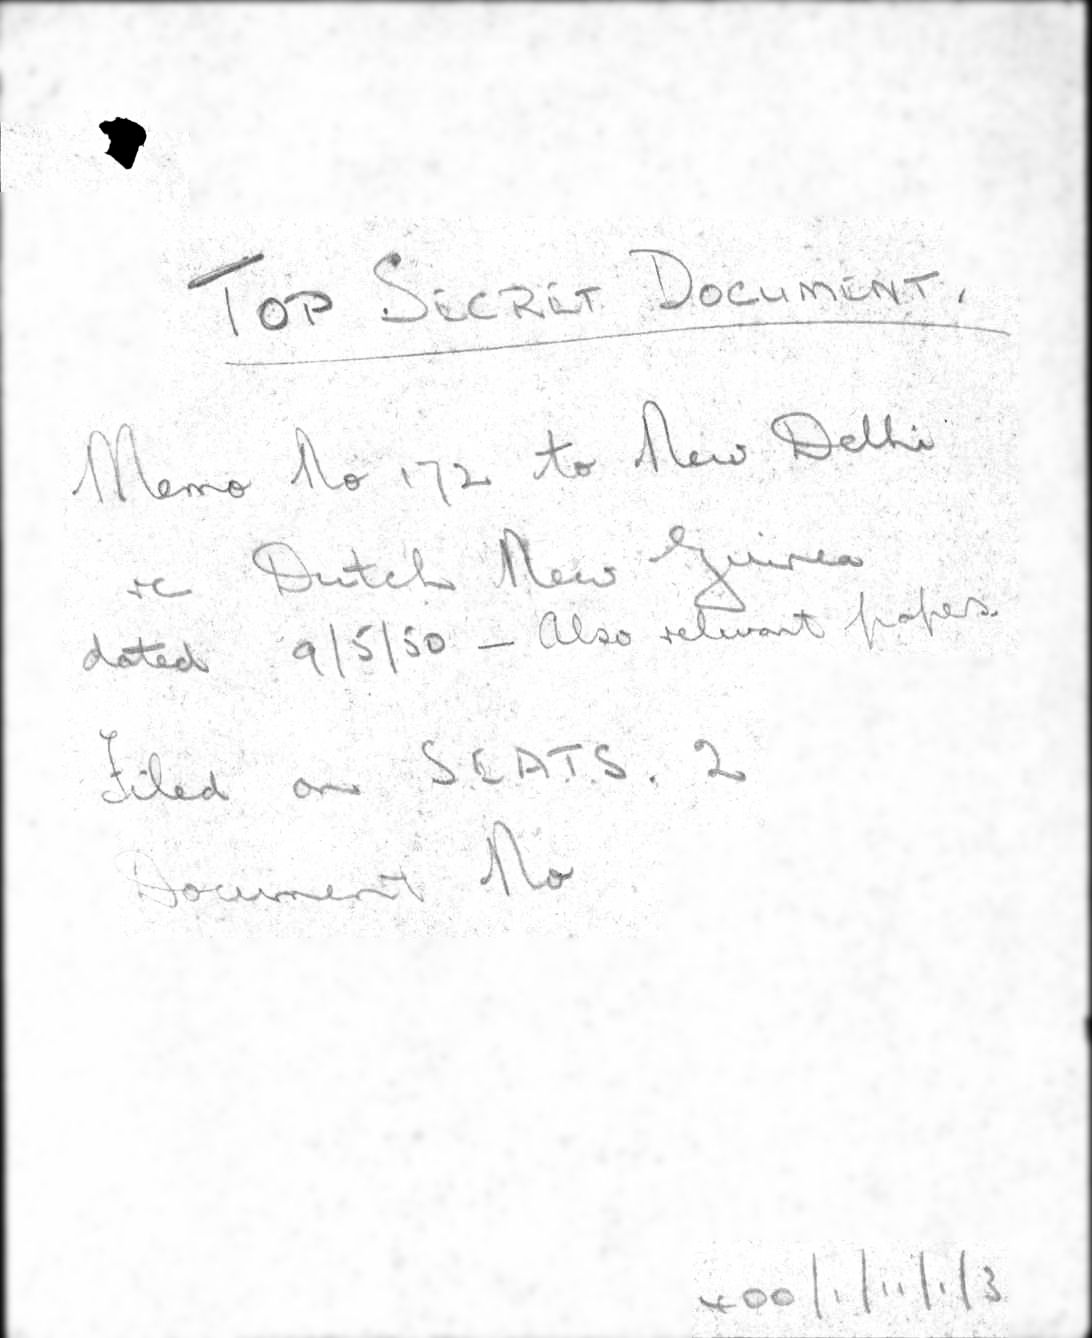 TOP SECRET DOCUMENT.
Memo No 172 to New Delhi
re Dutch New Guinea
dated 9/5/50 — Also relevant papers.
Filed on S.E.A.T.S. 2
Document No
400/1/11/1/3